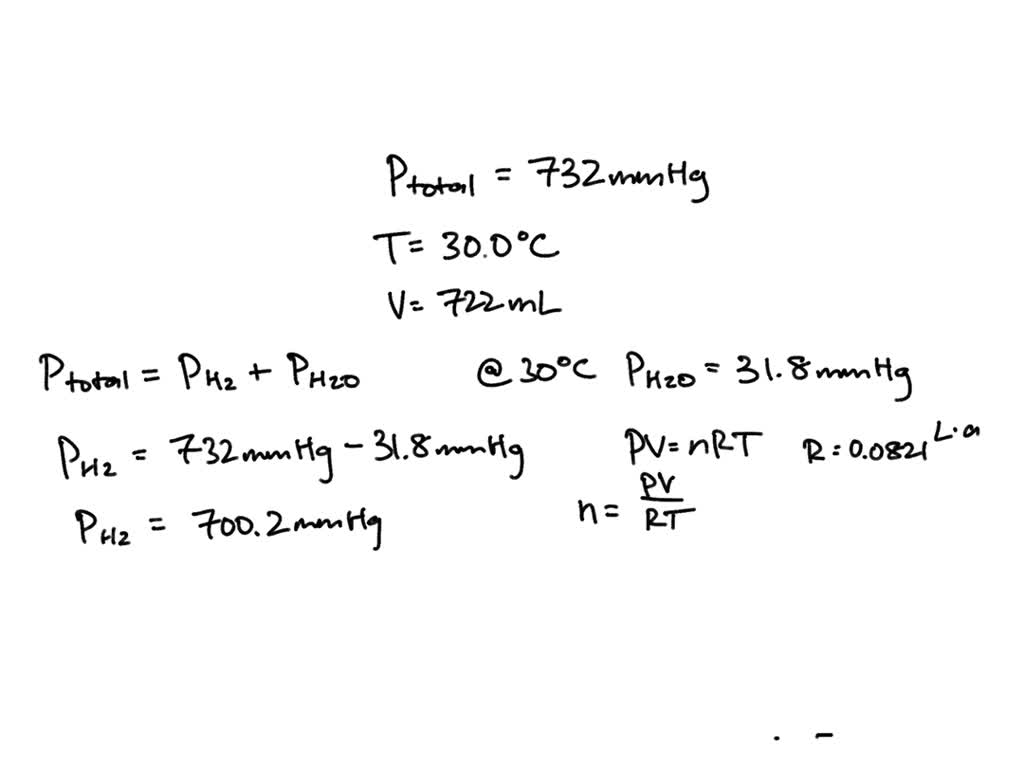 Ptotal = 732mmHg
T= 30.0°C
V= 722mL
Ptotal = PH2 + PH2O @30°C PH2O = 31.8mmHg
PH2 = 732mmHg - 31.8mmHg PV=nRT R=0.0821 L·a
PH2 = 700.2mmHg n= PV/RT